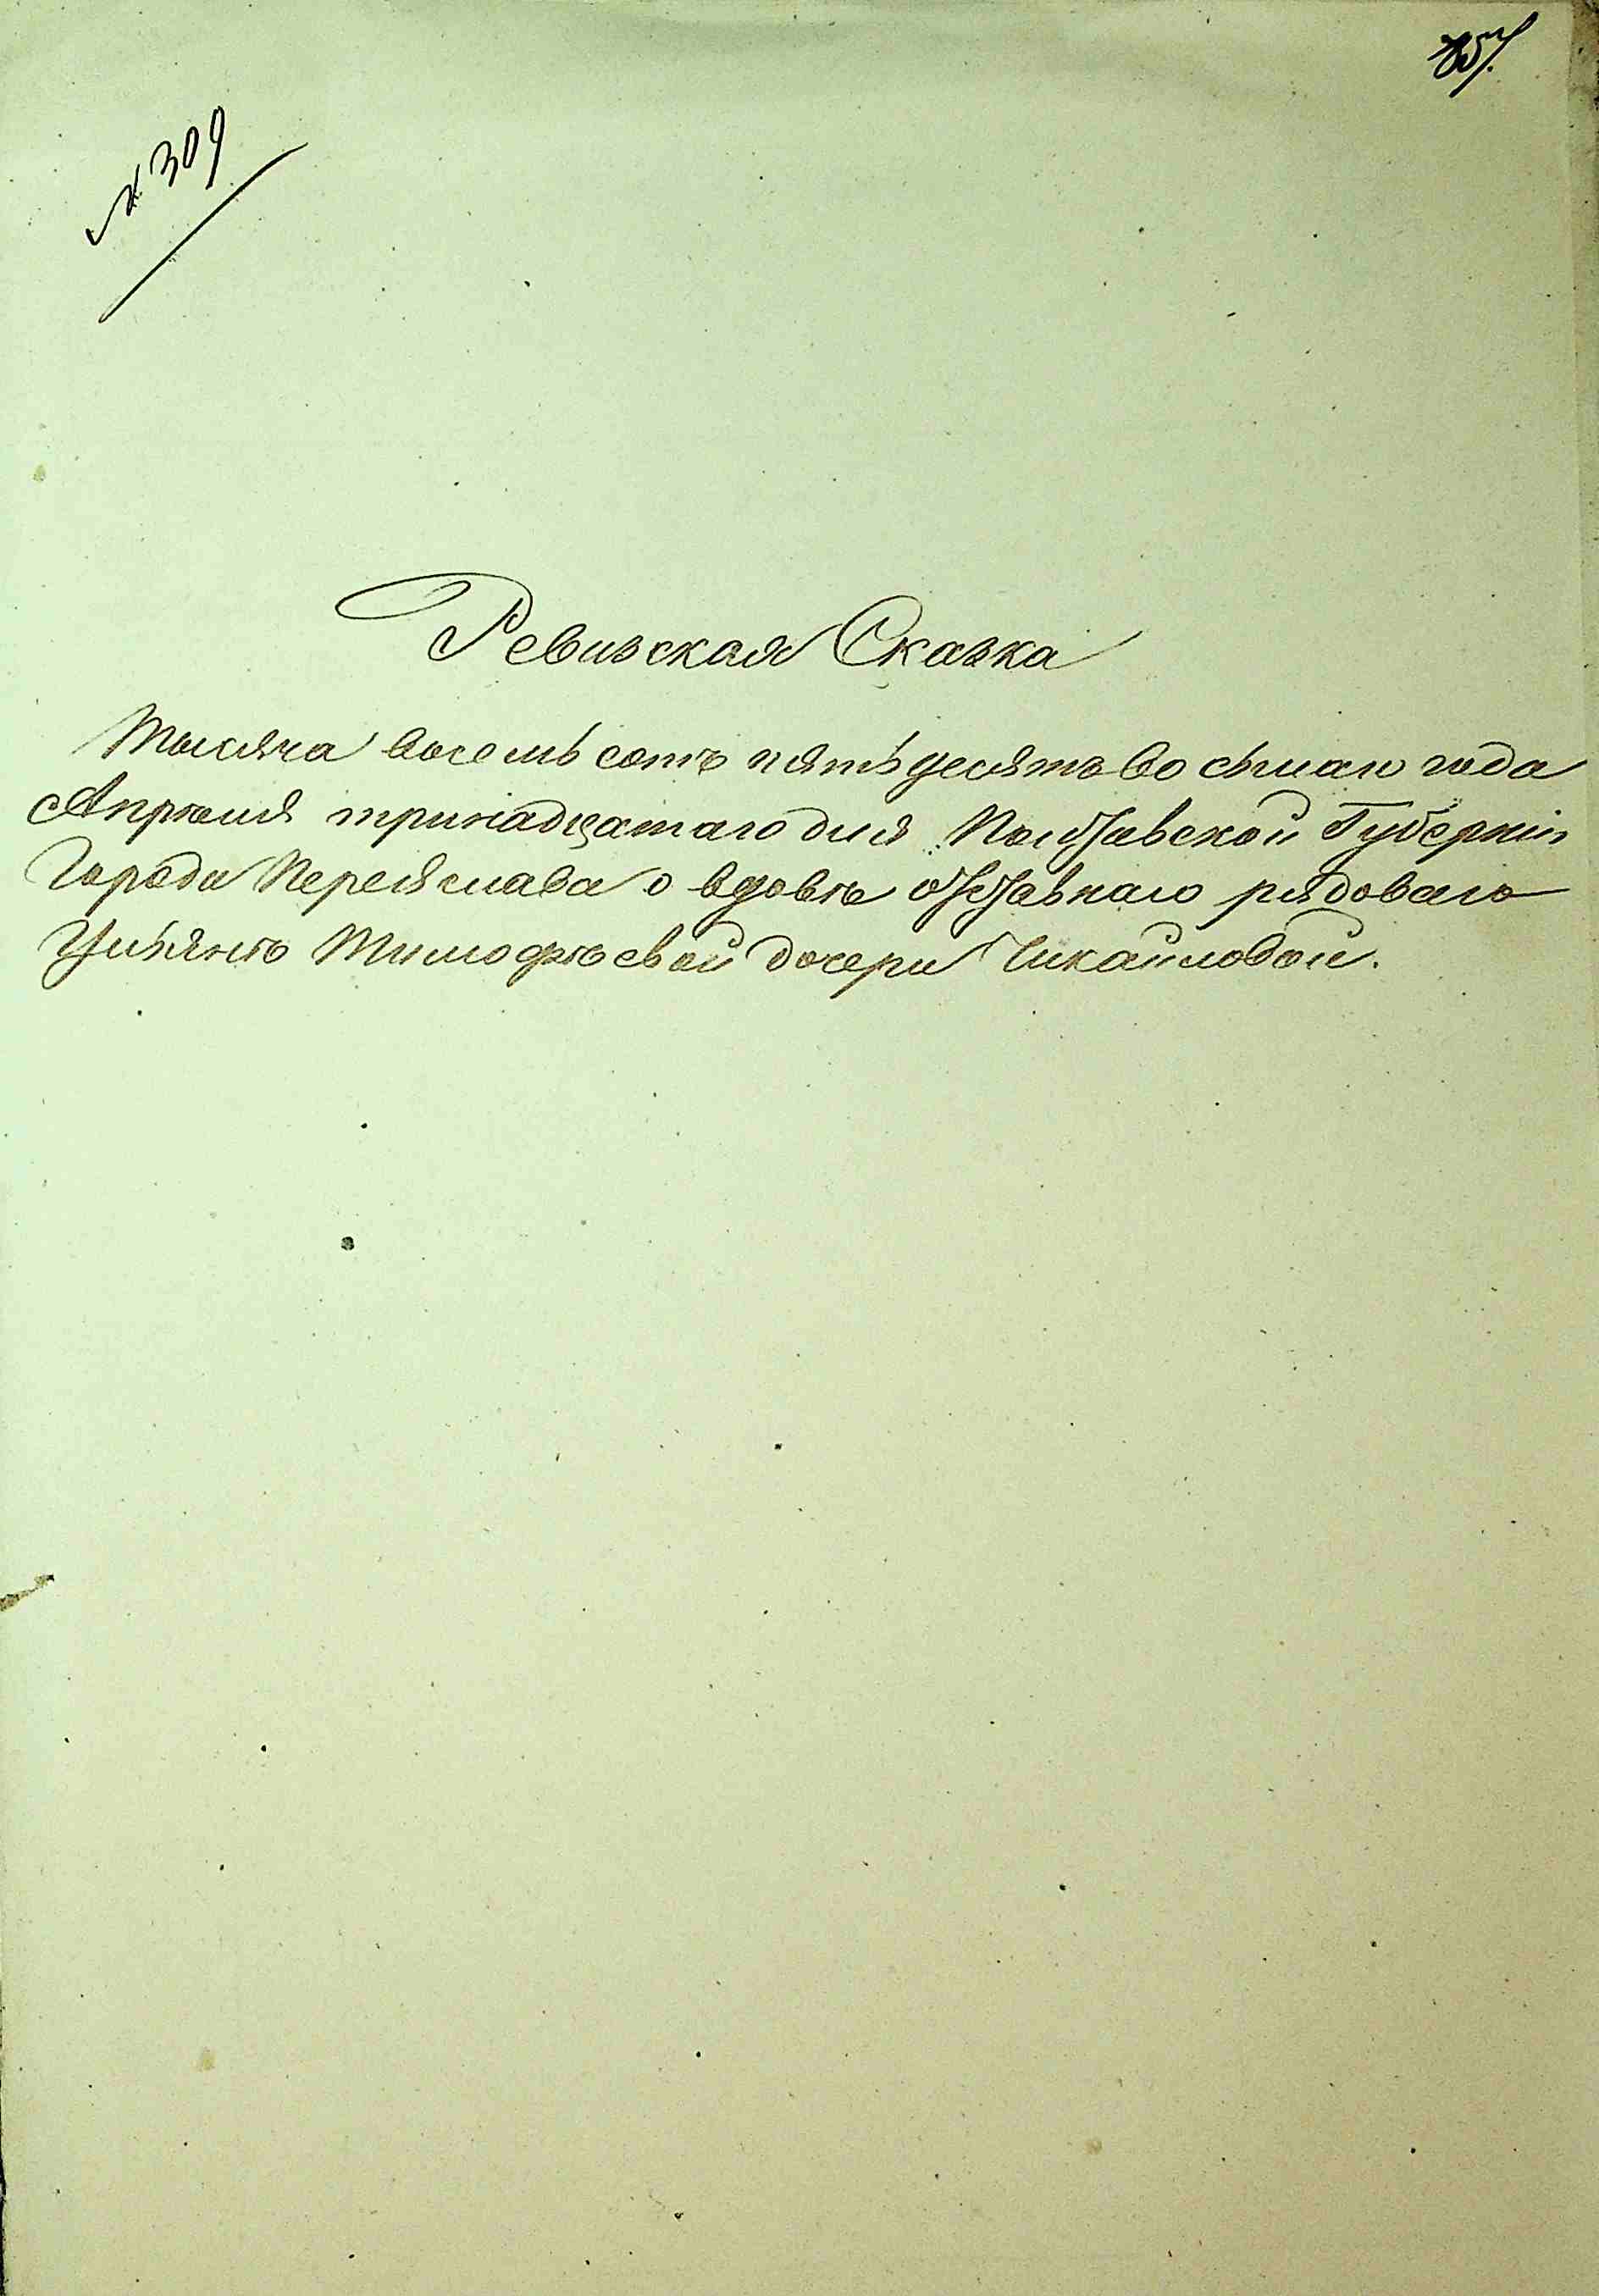 № 309
Ревизская Сказка
Тысяча восемь сотъ пятьдесятъ восьмаго года
Апрѣля тринадцатаго дня Полтавской Губерніи
Города Переяслава о вдовѣ отставнаго рядоваго
Ульянѣ Тимофѣевой дочери Чикаиловой.